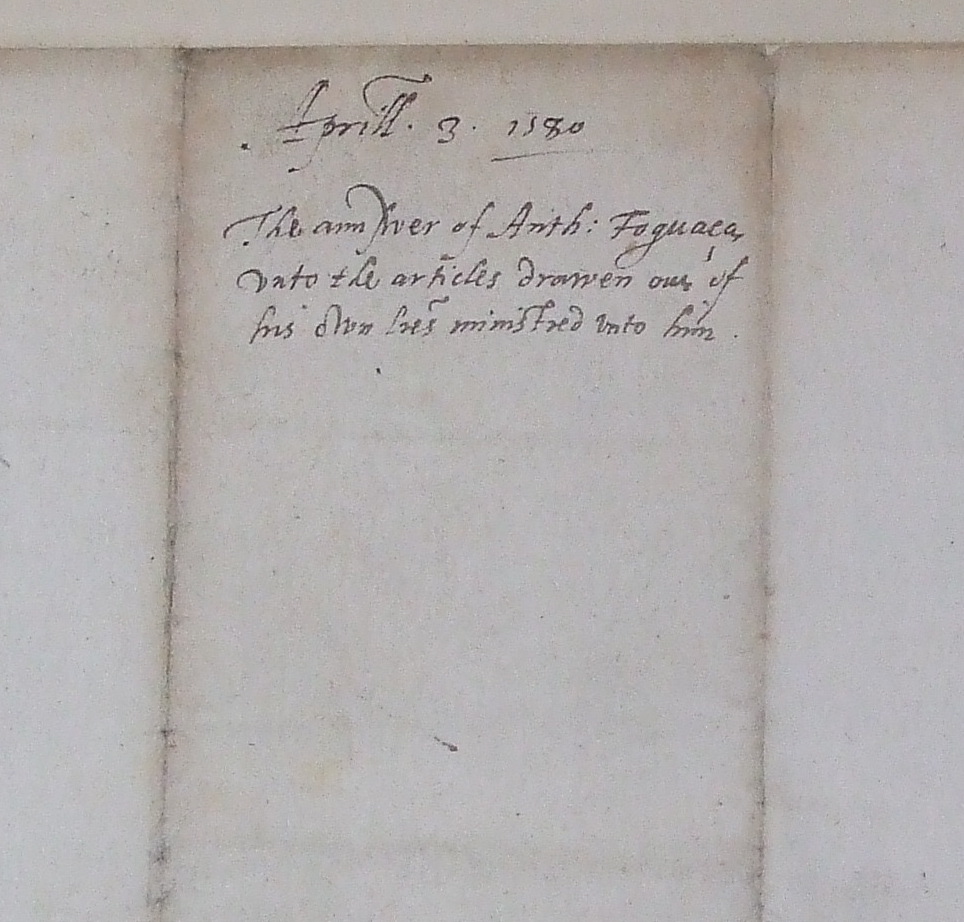 Aprill. 3. 1580
The answer of Anth: Foguaca,
vnto the articles drawen out of
his own lres ministred vnto him.